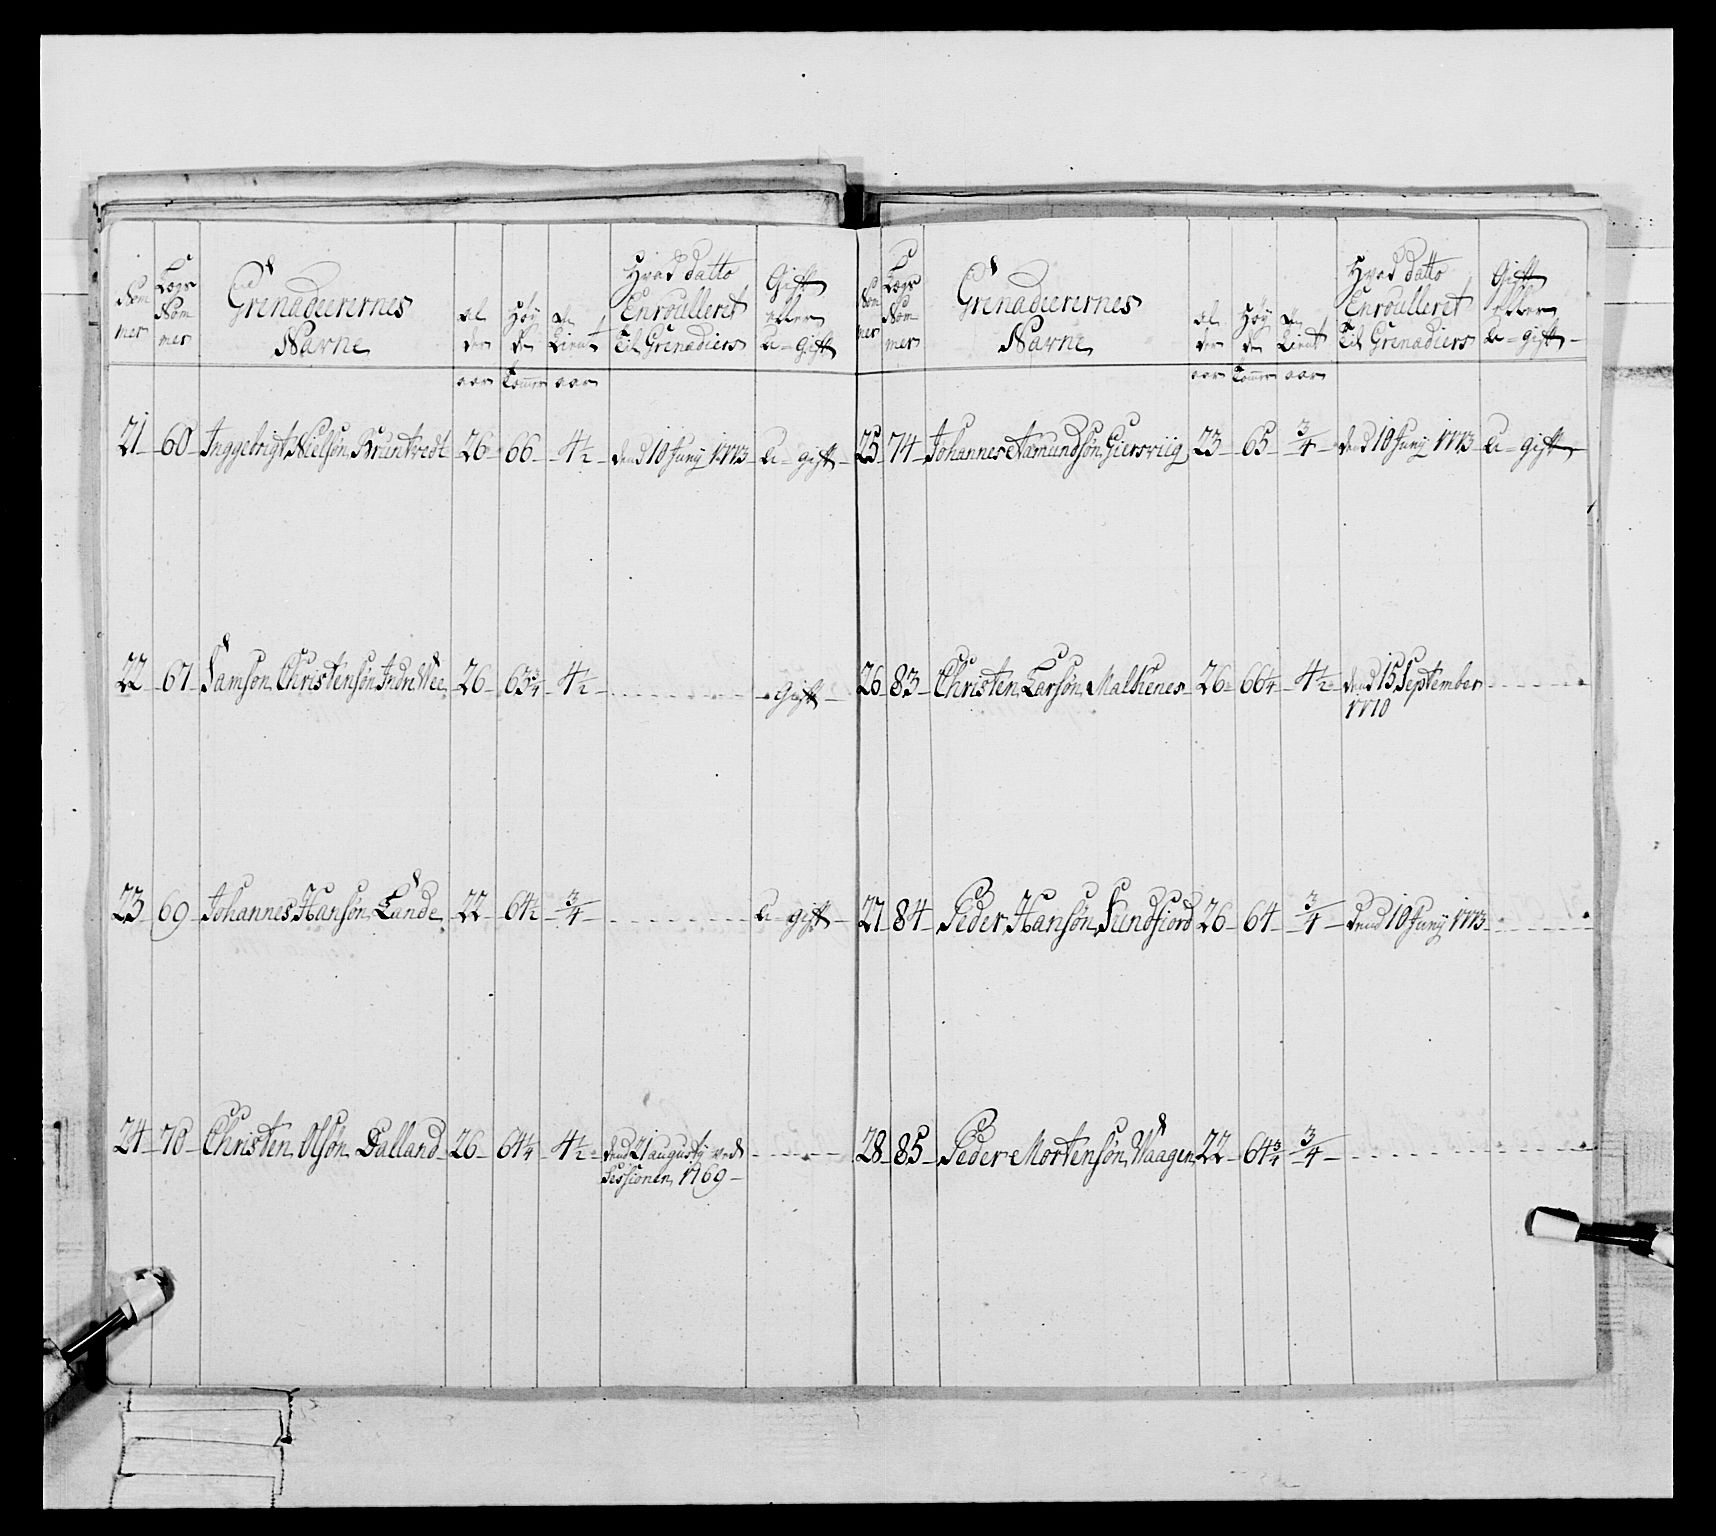 Nom mer | Lægs Nom mer | Grenadeerernes Navne | al der | Høy de | tient | Hvad datto Enroulleret til Grenadiers | Gift eller u-gift
aar | tommer | aar
21 | 60 | Inggebrigt Nielsøn Bruntvedt | 26 | 66 | 4½ | dend 10 Junÿ 1773 | u-gift
22 | 67 | Samson Christensøn Indre Wee | 26 | 63¾ | 4½ | Gift
23 | 69 | Johannes Hansøn Lunde | 22 | 64½ | ¾ | u-gift
24 | 70 | Christen Olsøn Dalland | 26 | 64¼ | 4½ | dend 21 augustÿ ved
Sessionen 1769
Nom mer | Lægs Nom mer | Grenadeerernes Navne | al der | Høy de | tient | Hvad datto Enroulleret til Grenadiers | Gift eller u-gift
aar | tommer | aar
25 | 74 | Johannes Aamundsøn Giersviig | 23 | 65 | ¾ | dend 10 Junÿ 1773 | u-gift
26 | 83 | Christen Larsøn Malkenes | 26 | 66¼ | 4½ | dend 15 September
1770
27 | 84 | Peder Hansøn Sundfiord | 26 | 64 | ¾ | dend 10 Junÿ 1773
28 | 85 | Peder Mortensøn Waagen | 22 | 64¾ | ¾